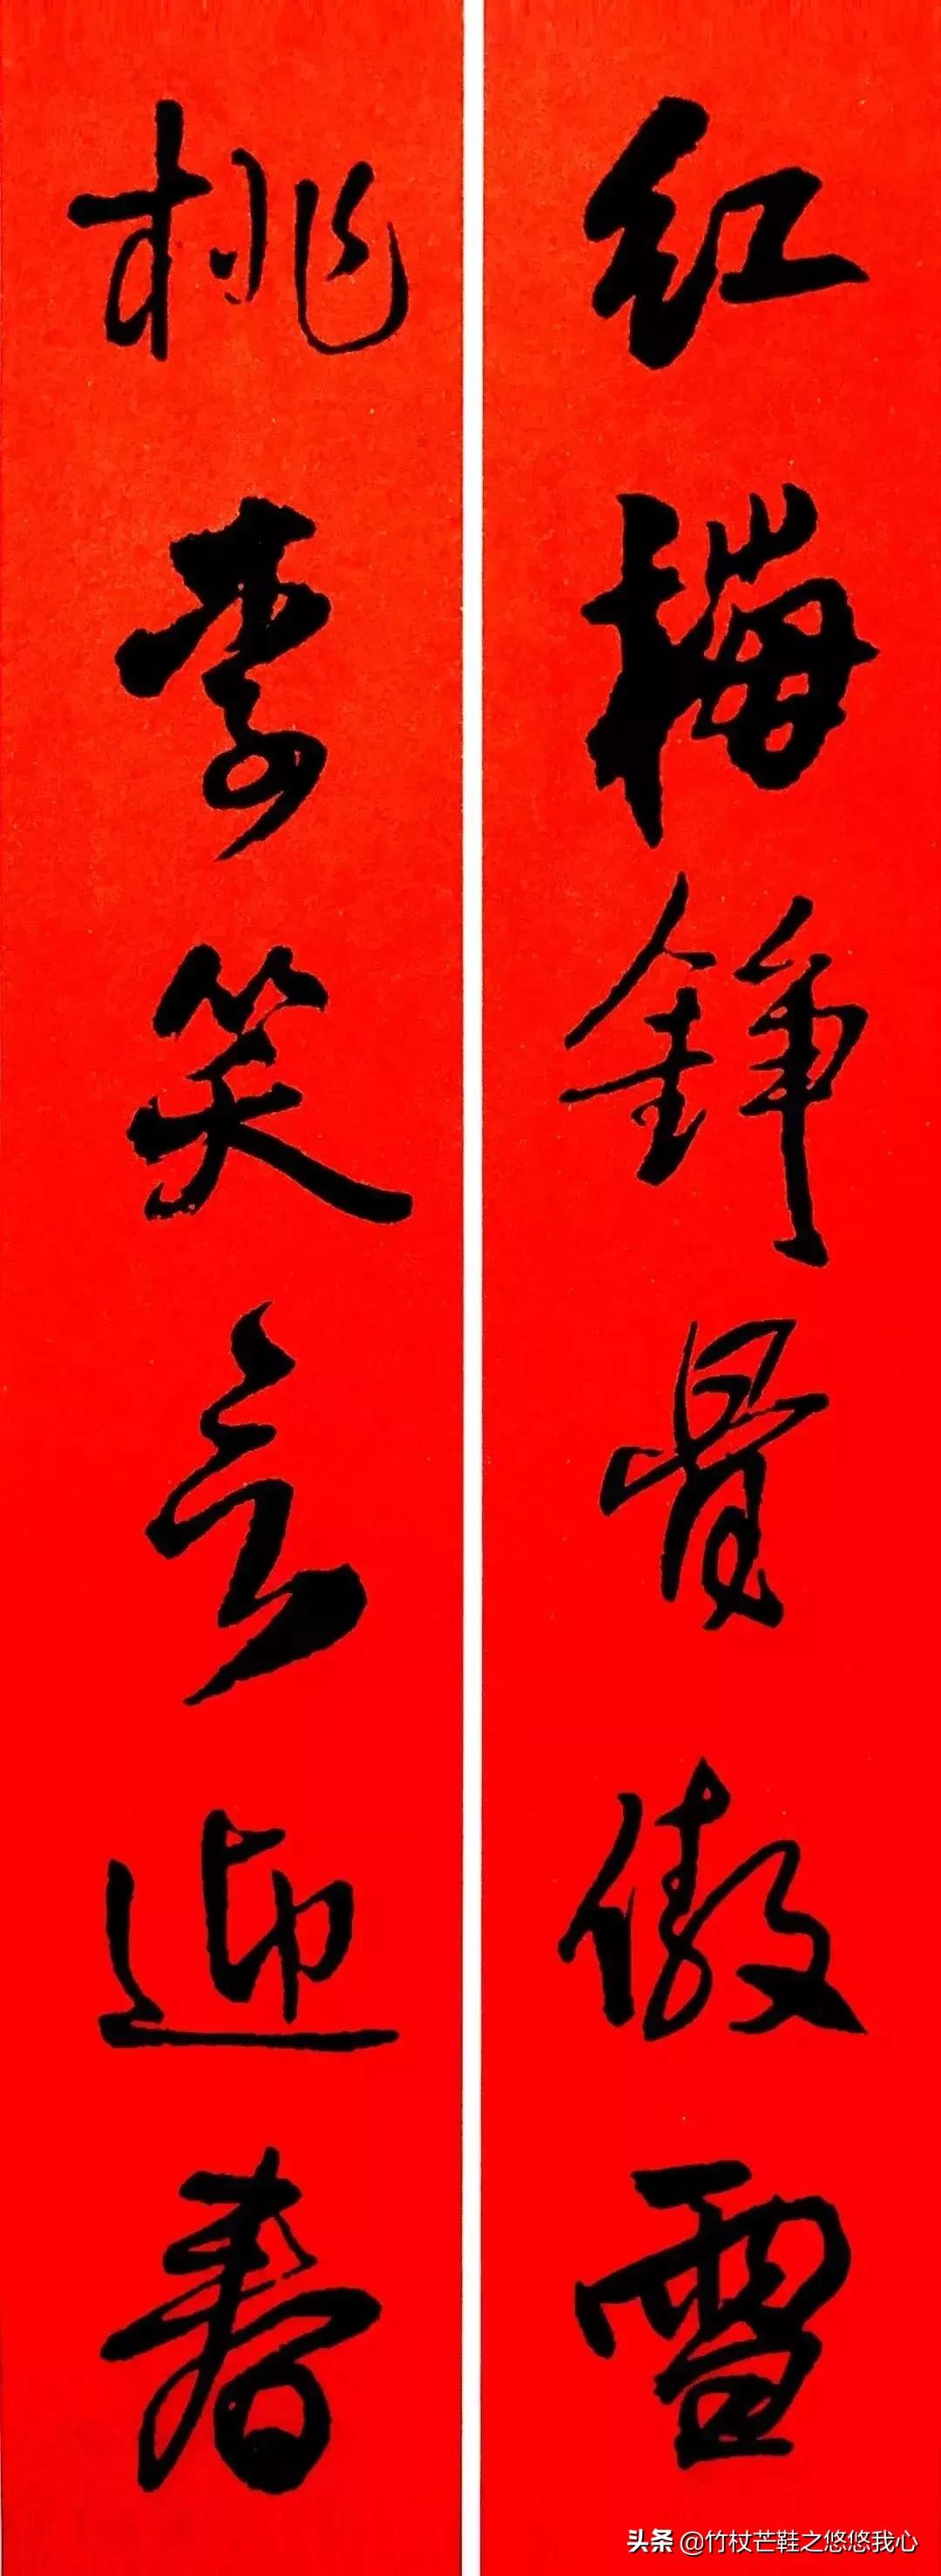 红梅錚骨傲雪
桃李笑言迎春
头条 @竹杖芒鞋之悠悠我心